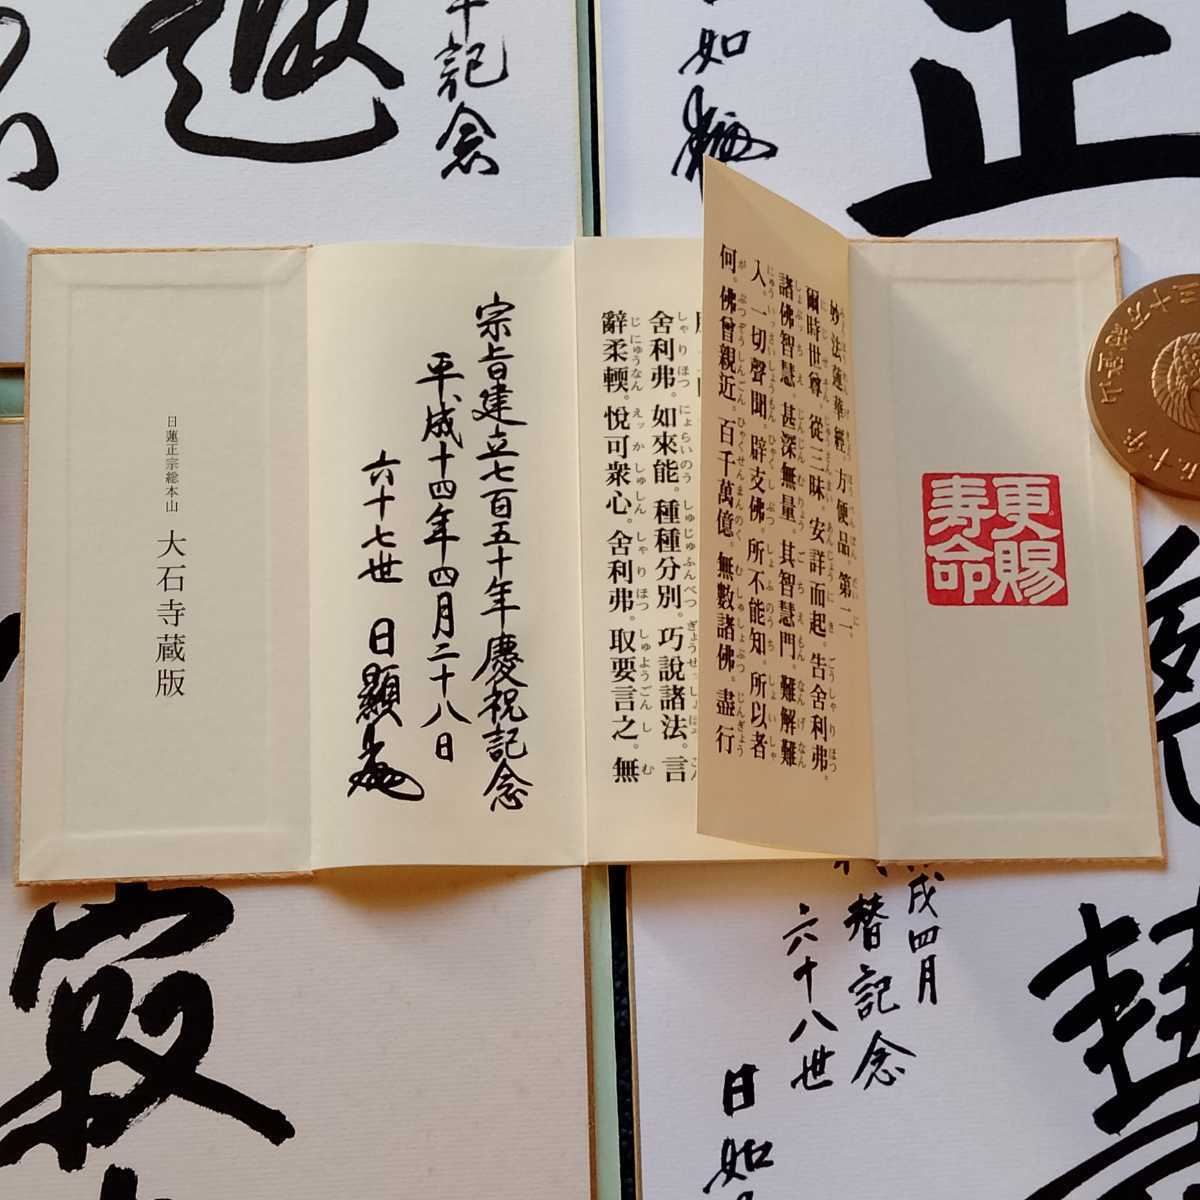 年記念
如
正
更賜
寿命
妙法蓮華經 方便品。第二。
爾時世尊。從三昧。安詳而起。告舍利弗。
諸佛智慧。甚深無量。其智慧門。難解難
入。一切聲聞。辟支佛。所不能知。所以者
何。佛曾親近。百千萬億。無數諸佛。盡行
舍利弗。如來能。種種分別。巧說諸法。言
辭柔輭。悅可衆心。舍利弗。取要言之。無
宗旨建立七百五十年慶祝記念
平成十四年四月二十八日
六十七世 日顯
日蓮正宗総本山 大石寺蔵版
寂
戌四月
替記念
六十八世
日如